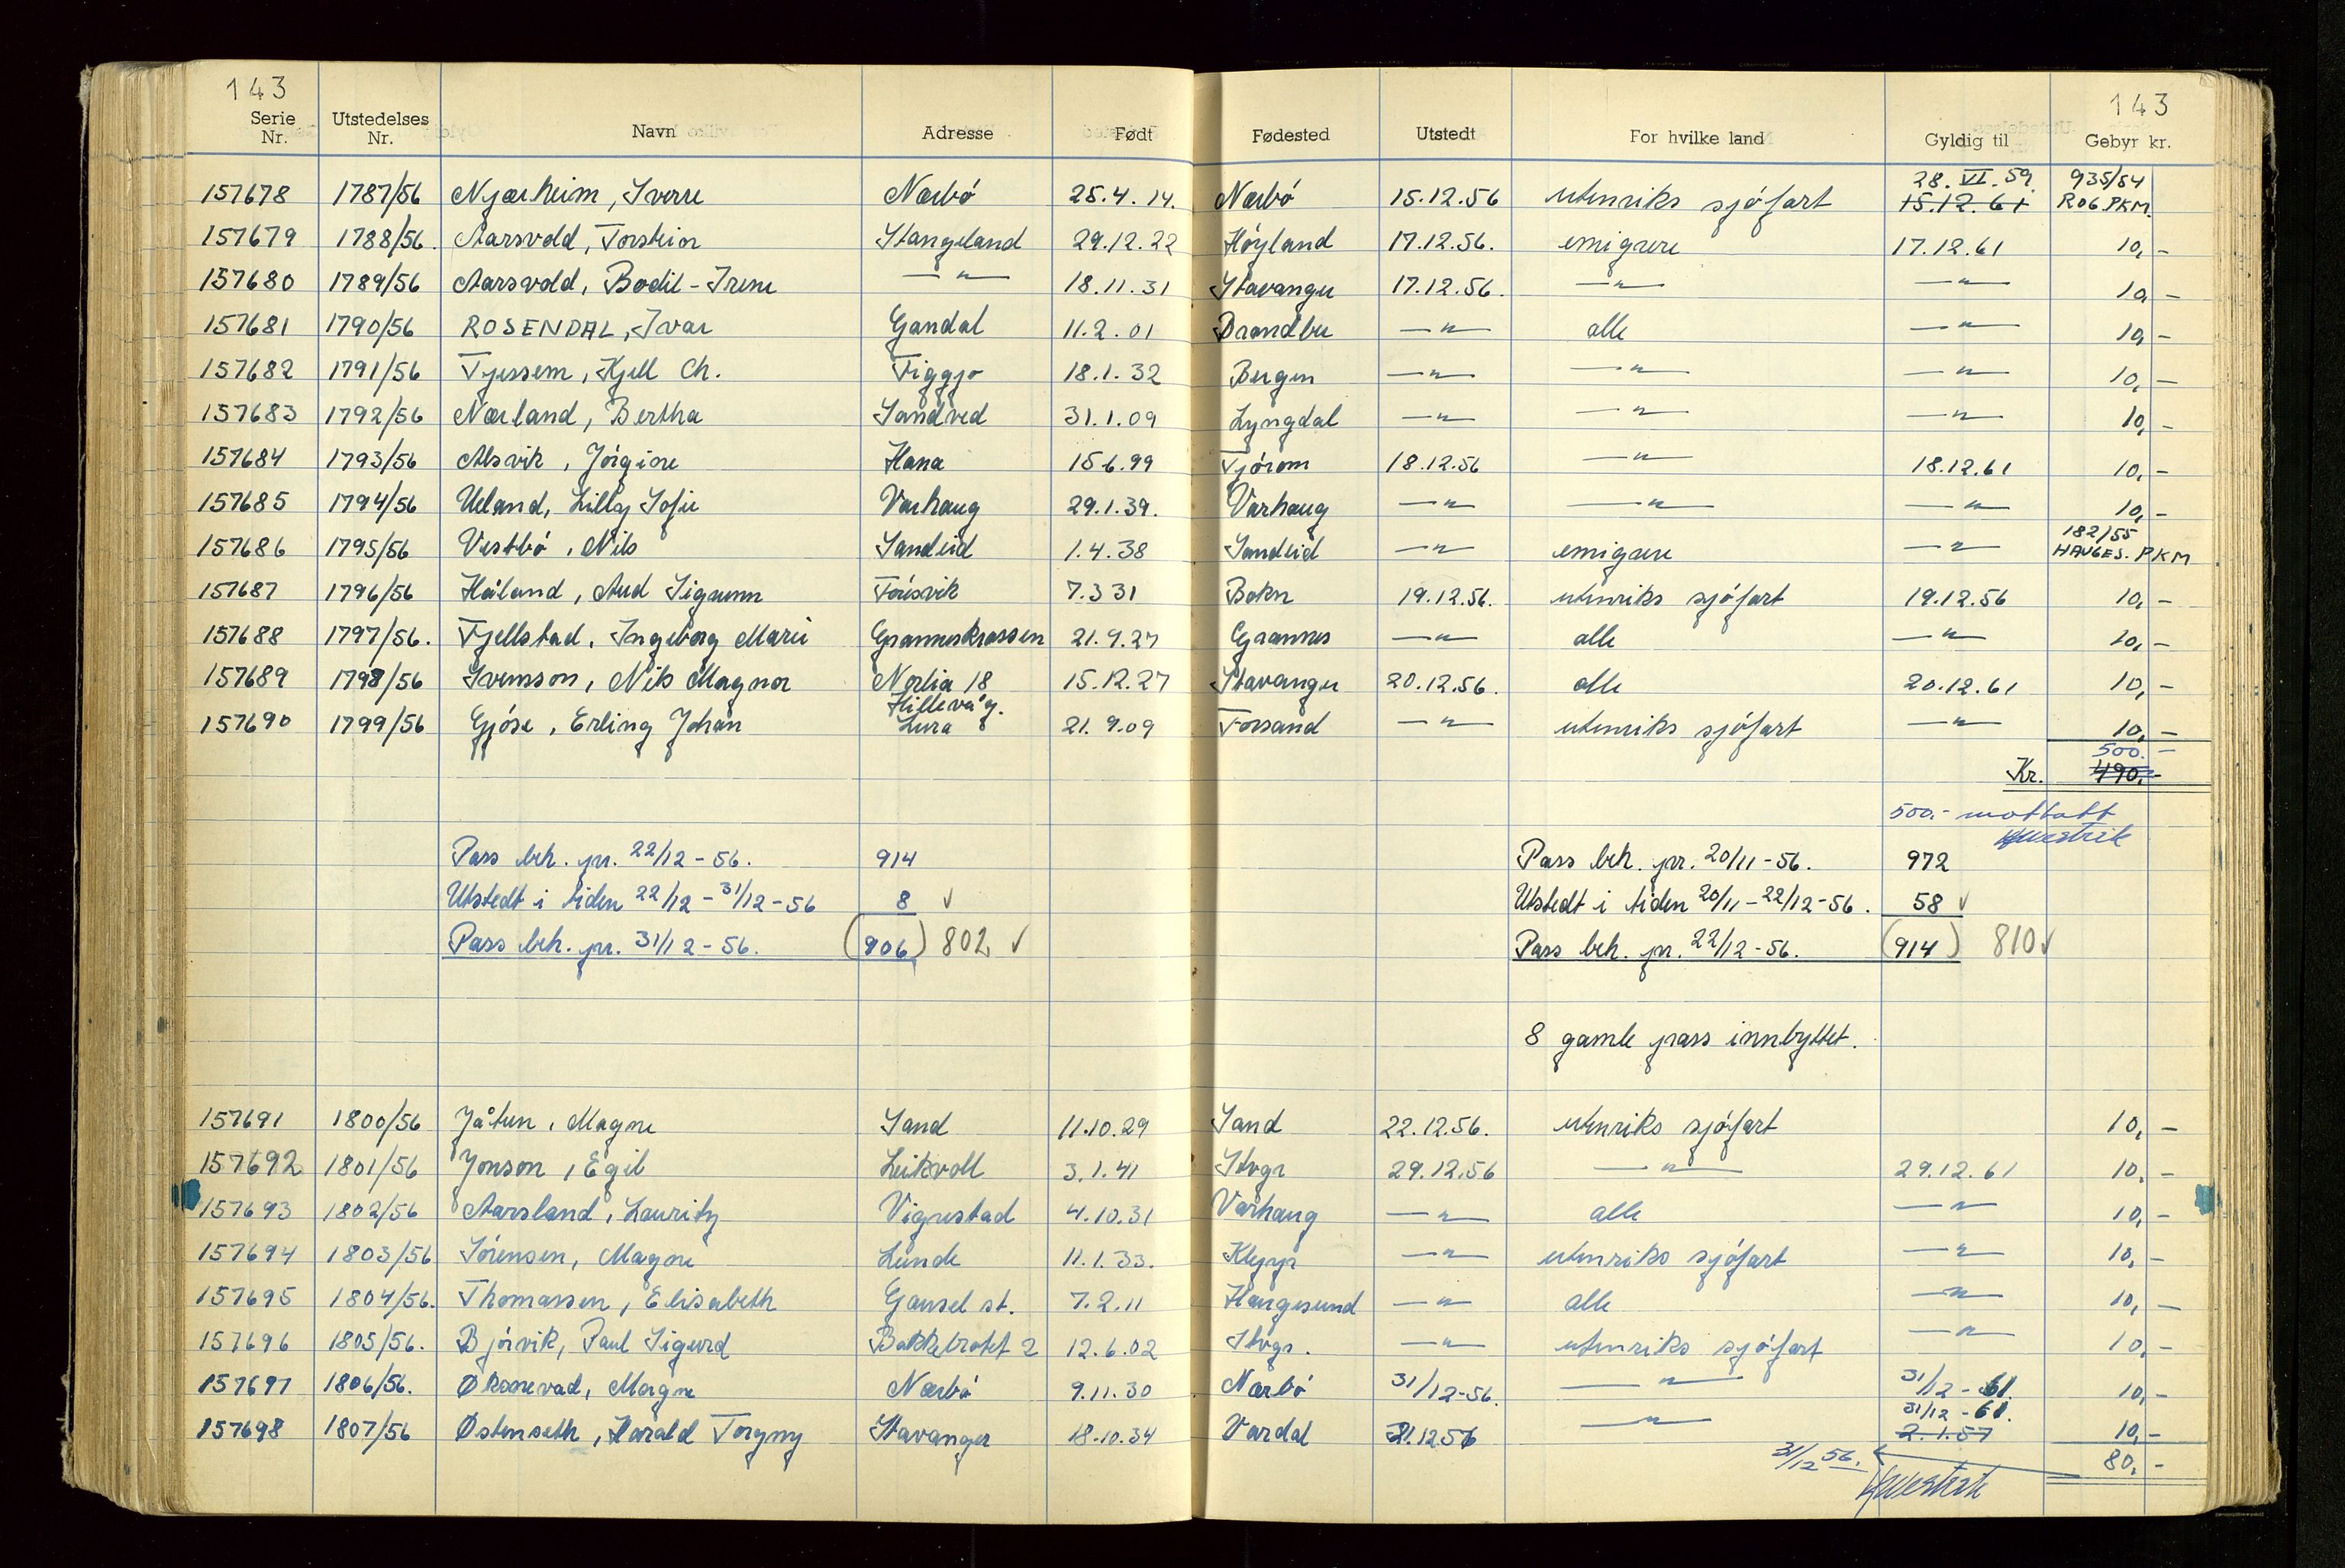 143 143
Serie Nr. Utstedelses Nr. Navn Adresse Født Fødested Utstedt For hvilke land Gyldig til Gebyr kr.
157678 1787/56 Njærheim, Sverre Nærbø 25.4.14. Nærbø 15.12.56 utenriks sjøfart 28.VI.59. 15.12.61 935/54 ROG.PKM.
157679 1788/56. Aarsvold, Torstein Stangeland 29.12.22 Høyland 17.12.56. emigrere 17.12.61 10,-
157680 1789/56 Aarsvold, Bodil-Irene —"— 18.11.31 Stavanger 17.12.56. —"— —"— 10,-
157681 1790/56 ROSENDAL, Ivar Gandal 11.2.01 Brandbu —"— alle —"— 10,-
157682 1791/56 Tjessem, Kjell Ch. Figgjo 18.1.32 Bergen —"— —"— —"— 10,-
157683 1792/56 Nærland, Bertha Sandved 31.1.09 Lyngdal —"— —"— —"— 10,-
157684 1793/56 Alsvik, Jørgine Hana 15.6.99 Tjørom 18.12.56 —"— 18.12.61 10,-
157685 1794/56 Ueland, Lilly Sofie Varhaug 29.1.39. Varhaug —"— —"— —"— 10,-
157686 1795/56 Vestbø, Nils Sandeid 1.4.38 Sandeid —"— emigrere —"— 182/55 HAUGES. PKM
157687 1796/56 Håland, Aud Sigrunn Førisvik 7.3 31 Bokn 19.12.56. utenriks sjøfart 19.12.56 10,-
157688 1797/56. Fjellstad, Ingeborg Marie Granneskrossen 21.9.27 Grannes —"— alle —"— 10,-
157689 1798/56 Svensson, Nils Magnor Norlia 18 Hillevåg. 15.12.27 Stavanger 20.12.56. alle 20.12.61 10,-
157690 1799/56 Gjøse, Erling Johan Lura 21.9.09 Forsand —"— utenriks sjøfart —"— 10,-
500.-
Kr. 490,-
500.- mottatt
Pass beh. pr. 22/12-56. 914 Pass beh. pr. 20/11-56. 972
Utstedt i tiden 22/12-31/12-56 8 ✓ Utstedt i tiden 20/11-22/12-56. 58 ✓
Pass beh. pr. 31/12-56. (906) 802 ✓ Pass beh. pr. 22/12-56. (914) 810 ✓
8 gamle pass innbyttet.
157691 1800/56 Jåtun, Magne Sand 11.10.29 Sand 22.12.56. utenriks sjøfart 10,-
157692 1801/56 Jonson, Egil Leikvoll 3.1.41 Stvgr 29.12.56 —"— 29.12.61 10,-
157693 1802/56 Aarsland, Lauritz Vigrestad 4.10.31 Varhaug —"— alle —"— 10,-
157694 1803/56 Sørensen, Magne Lunde 11.1.33. Klepp —"— utenriks sjøfart —"— 10,-
157695 1804/56. Thomassen, Elisabeth Gausel st. 7.2.11 Haugesund —"— alle —"— 10,-
157696 1805/56. Bjørvik, Paul Sigurd Bakketrotet 2 12.6.02 Stvgr. —"— utenriks sjøfart —"— 10,-
157697 1806/56. Øksnevad, Magne Nærbø 9.11.30 Nærbø 31/12-56. —"— 31/12-61. 10,-
157698 1807/56 Østenseth, Harald Torgny Stavanger 18.10.34 Vardal 31.12.56 —"— 31/12-61. 2.1.57 10,-
31/12 56. 80,-